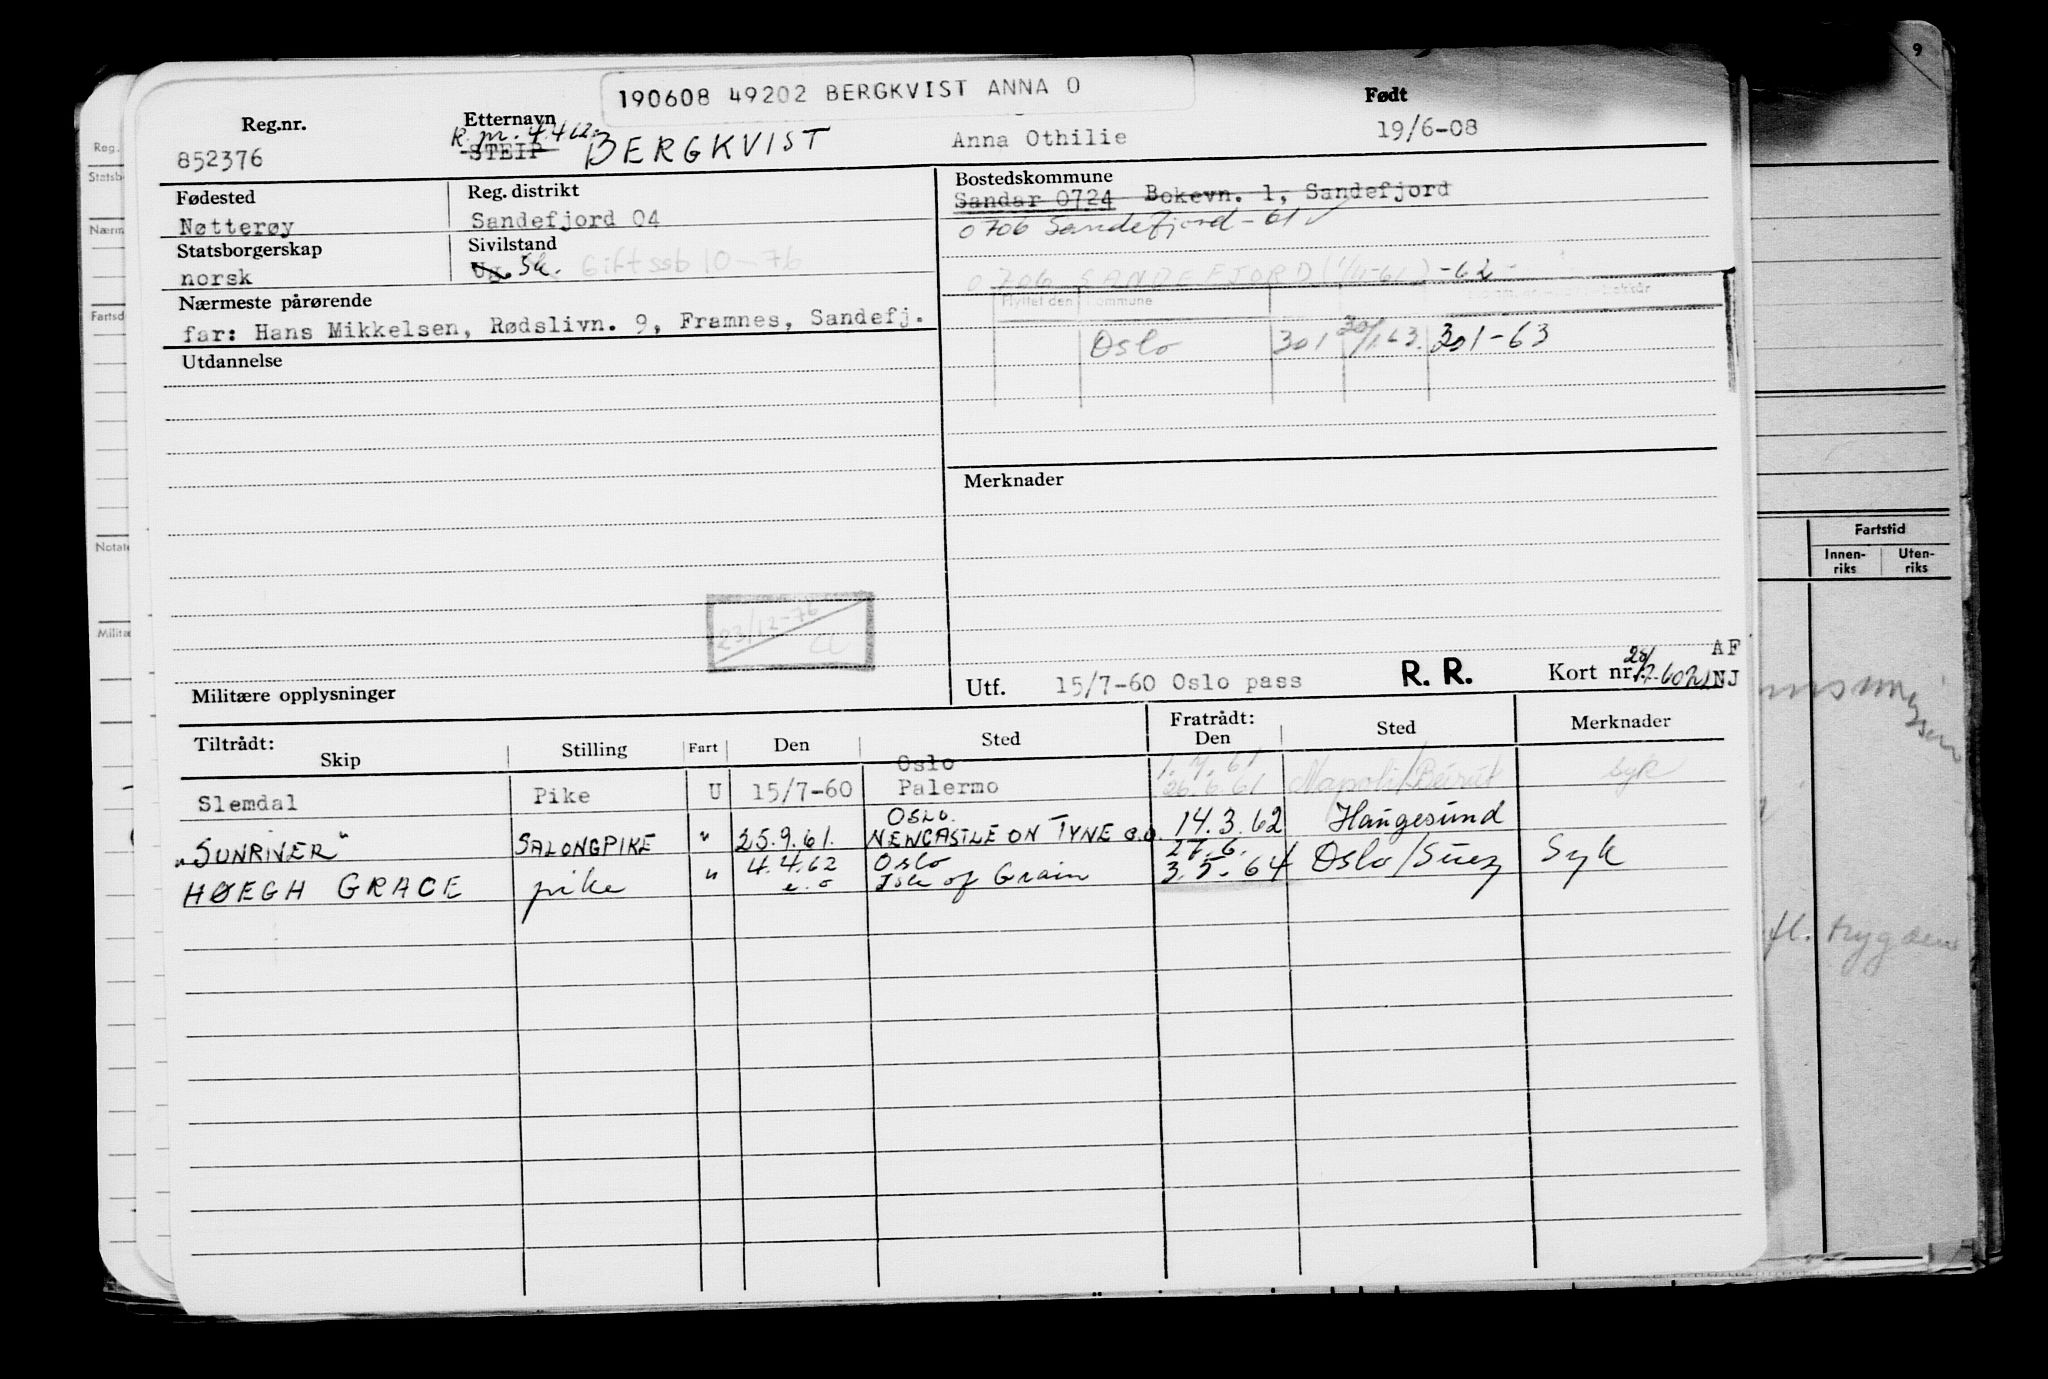 9
190608 49202 BERGKVIST ANNA O
Reg.nr. Etternavn Født
852376 STEIP BERGKVIST Anna Othilie 19/6-08
Fødested Reg. distrikt Bostedskommune
Nøtterøy Sandefjord 04 Sandar 0724 Bokevn. 1, Sandefjord
0706 Sandefjord - 61
Statsborgerskap Sivilstand
norsk Ug. Sk. Gift ssb 10-76
0706 SANDEFJORD (1/11-61) -62
Nærmeste pårørende Flyttet den Kommune
far: Hans Mikkelsen, Rødslivn. 9, Framnes, Sandefj.
Oslo 301 30/1.63. 301-63
Utdannelse
Merknader
23/12-76
Militære opplysninger Utf. 15/7-60 Oslo pass R. R. Kort nr. AF
NJ
Tiltrådt: Fratrådt:
Skip Stilling Fart Den Sted Den Sted Merknader
Oslo 1.4.61
Slemdal Pike U 15/7-60 Palermo 26.6.61 Napoli/Beirut syk
OSLO.
"SUNRIVER" SALONGPIKE " 25.9.61. NEWCASTLE ON TYNE e.o. 14.3.62 Haugesund
4.4.62 Oslo 27.6.
HØEGH GRACE pike " e.o Isle of Grain 3.5.64 Oslo/Suez Syk
Reg.
Statsb
Nærm
Fartsd
Notate
Militæ
Fartstid
Innen-
riks
Uten-
riks
fl. trygden